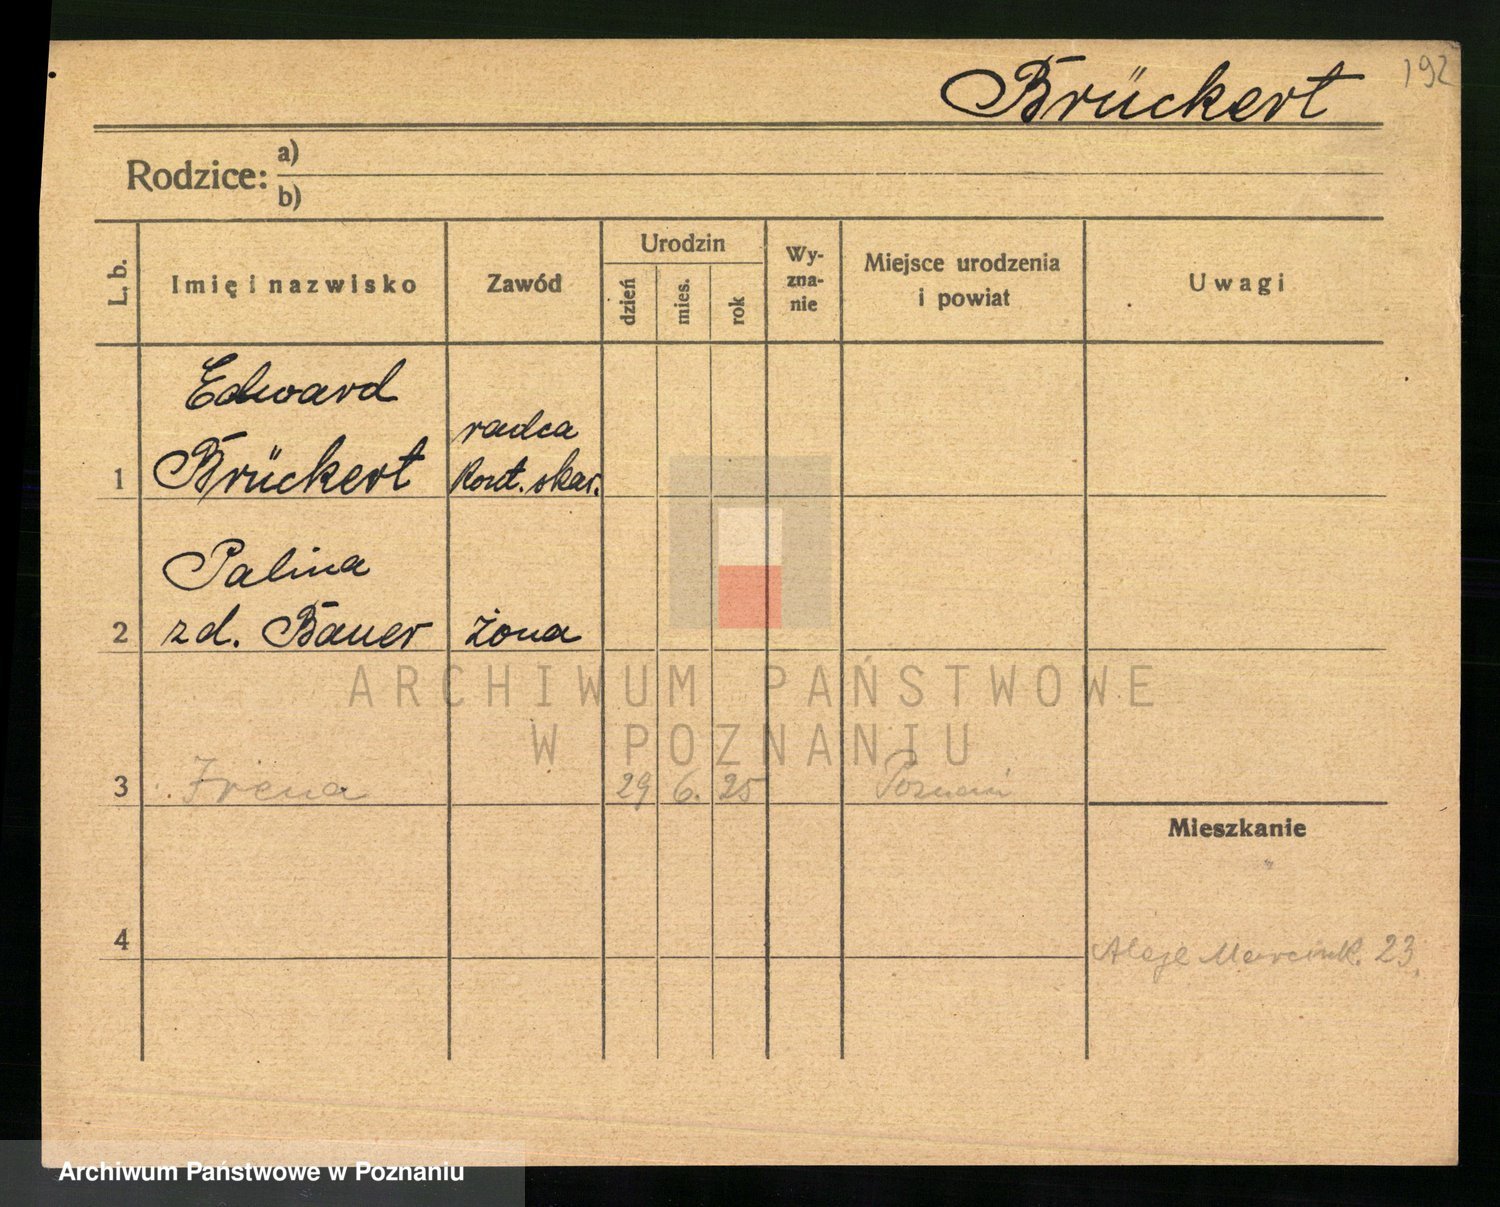 192
Brückert
Rodzice: a)
b)
L. b.
Imię i nazwisko
Zawód
Urodzin
dzień
mies.
rok
Wy-
zna-
nie
Miejsce urodzenia
i powiat
Uwagi
Edward
radca
1 Brückert
skar.
Palina
2 zd. Bauer żona
ARCHIWUM PAŃSTWOWE
W POZNANIU
3 Irena 29 6. 25 Poznań
Mieszkanie
4
Aleje Marcink. 23
Archiwum Państwowe w Poznaniu